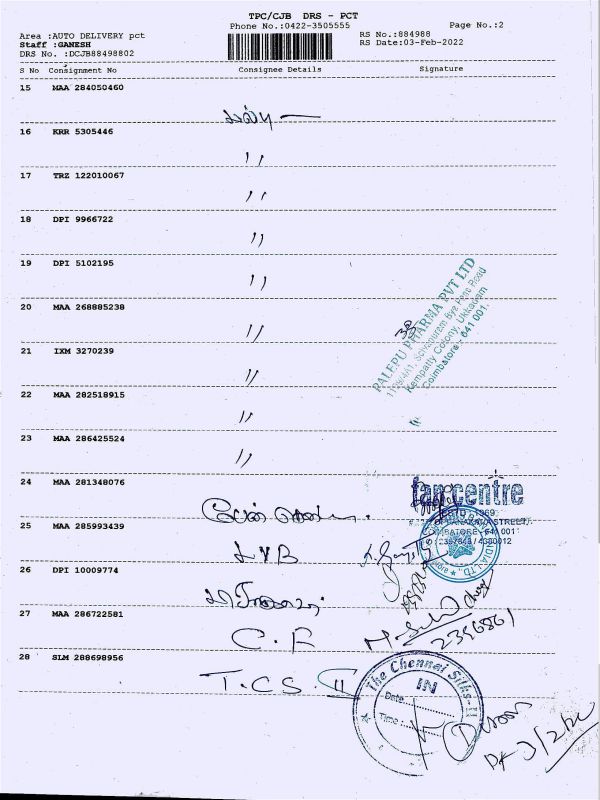 TPC/CJB DRS - PCT
Phone No.:0422-3505555
Page No.:2
Area :AUTO DELIVERY pct
RS No.:884988
Staff :GANESH
RS Date:03-Feb-2022
DRS No. :DCJB88498802
S No Consignment No Consignee Details Signature
15 MAA 284050460
16 KRR 5305446
''
17 TRZ 122010067
''
18 DPI 9966722
''
19 DPI 5102195
''
20 MAA 268885238
''
21 IXM 3270239
''
22 MAA 282518915
''
23 MAA 286425524
''
PALEPU PHARMA PVT LTD
Kempatty Colony, Ukkadam
Coimbatore - 641 001.
24 MAA 281348076
fan centre
25 MAA 285993439
LVB
26 DPI 10009774
27 MAA 286722581
C.F
2396861
28 SLM 288698956
T.C.S. II
The Chennai Silks-II
IN
Date
Time